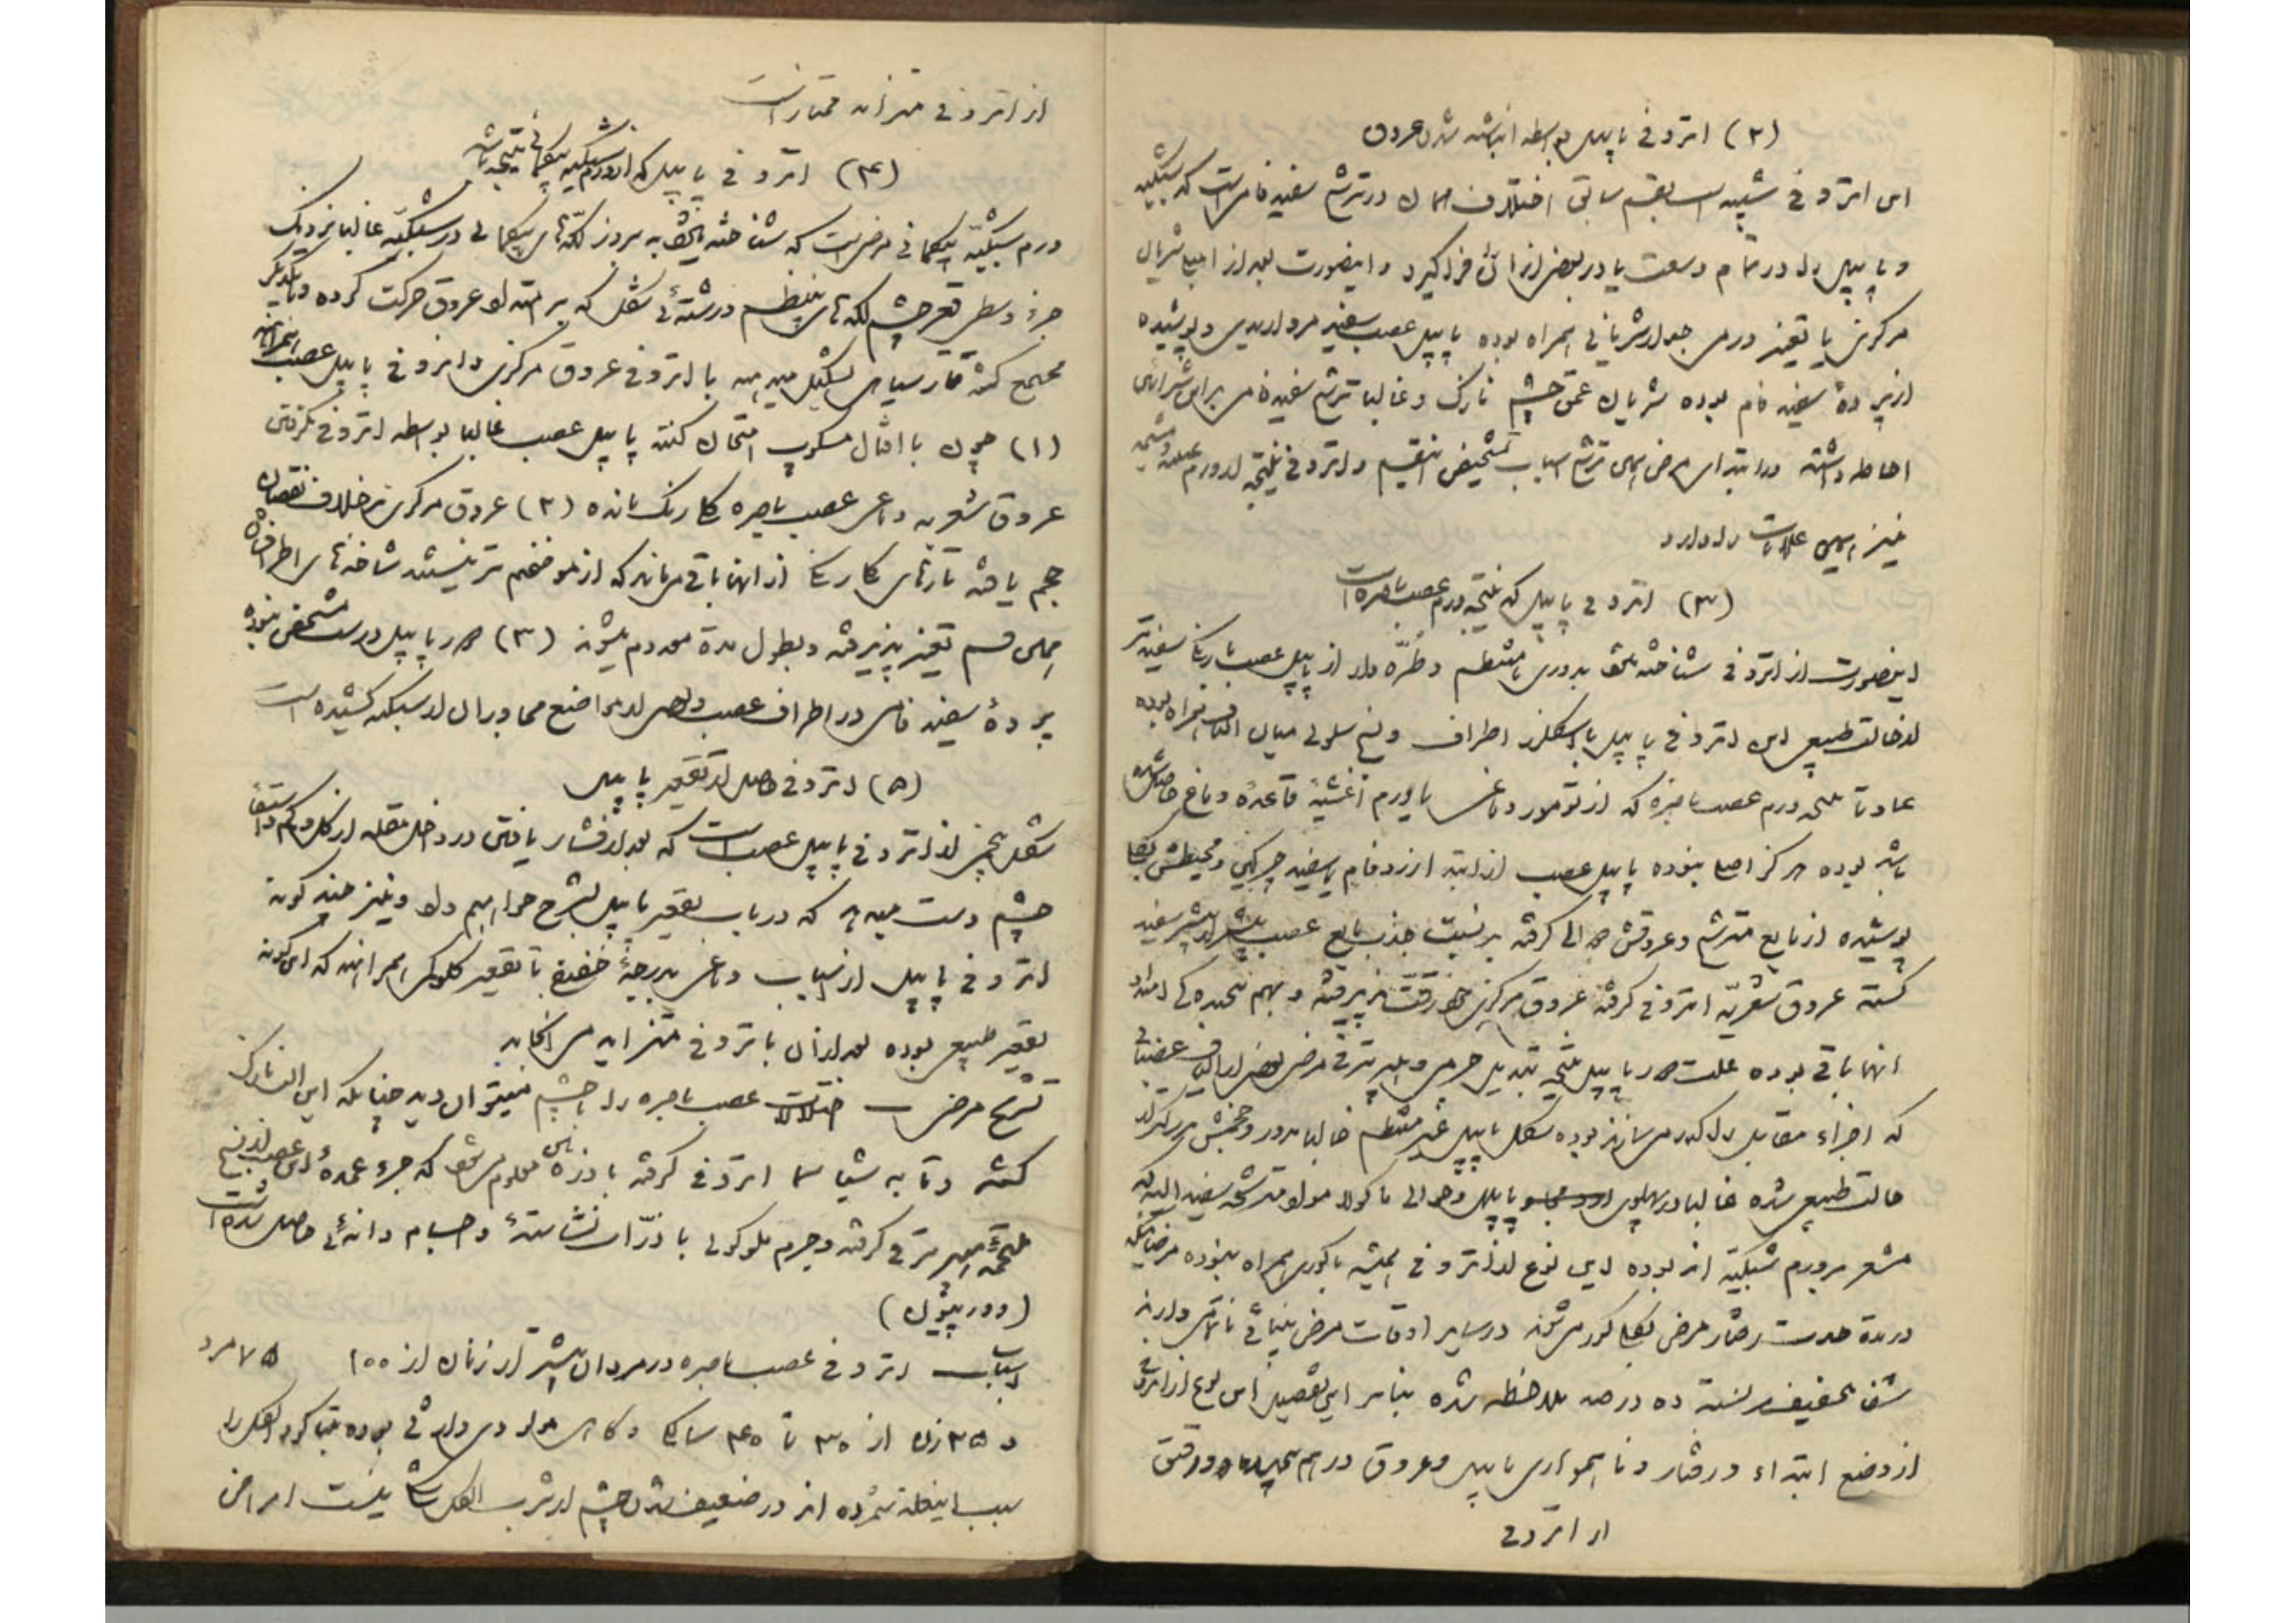 (۲) اتروفی پاپیل بواسطه انباشته شدن عروق
این اتروفی شبیه است بقسم سابق اختلاف همان در ترشح سفید فامی است که شبکیه
و پاپیل را در تمام وسعت یا در بعضی از آن فرا گیرد و اینصورت بعد از امبلی شریان
مرکزی یا تغیر در جدار شریانی همراه بوده پاپیل عصب سفید مرواریدی و پوشیده
از پردهٔ سفید فام بوده شریان عمق چشم نازک و غالبا ترشح سفید فامی براین شرائین
احاطه داشته در ابتدای مرض این ترشح اسباب تشخیص انقسم و اتروفی نتیجه از ورم عصب
نیز همین علامات را دارد
(۳) اتروفی پاپیل که نتیجه ورم عصب باصره است
اینصورت از اتروفی شناخته میشود بدوری نامنتظم و طرّه دار از پاپیل عصب با رنگ سفیدتر
از حالت طبیعی این اتروفی پاپیل با اسکلرز اطراف و نسج سلولی میان الیاف همراه بوده
عادتا نتیجه ورم عصب باصره که از تومور دماغی یا ورم اغشیهٔ قاعدهٔ دماغ حاصل شده
باشد بوده مرکز اصلی بنوده پاپیل عصب از ابتدا زرد فام یا سفید چرکین و محیطش بکلی
پوشیده از مایع مترشح و عروقش حوالی گرفته بر نسبت جذب مایع عصب بیشتر سفید
گشته عروق شعریّه اتروفی گرفته عروق مرکزی رقت پذیرفته و بهم پیچیده کی امتداد
آنها باقی بوده علت در پاپیل نتیجه تبدیل جرمی و هیپرتروفی مرض بعضی از الیاف عصبانی
که اجزاء مقابل را کدر میسازند بوده شکل پاپیل غیر منتظم غالبا مدور و حجمش بزرگتر از
حالت طبیعی شده غالبا در پهلوی پاپیل و حوالی ماکولا مواد مترشحه سفید البته که
مشعر بر ورم شبکیّه اند بوده این نوع از اتروفی همیشه با کوری همراه بنوده مرضائیکه
در مدة حدت رفتار مرض بکلی کور میشوند در سایر اوقات مرض بینائی ناقصی دارند
شفا خفیف بر نسبة ده درصد ملاحظه شده بنابر این تفصیل این نوع از اتروفی
از وضع ابتداء و رفتار و ناهمواری پاپیل و عروق درهم پیچیده و رقیق
از اتروفی
از اتروفی متزایده ممتاز است
(۴) اتروفی پاپیل که از ورم شبکیه پیکمانی نتیجه باشد
ورم شبکیّه پیکمانی مرضی است که شناخته میشود به بروز لکّه‌های پیکمانی در شبکیّه غالبا نزدیک
جزء وسطی قعر چشم لکه‌های بینظم و رشتهٔ شکل که بر امتداد عروق حرکت کرده و با یکدیگر
مجتمع گشته قار سیاهی تشکیل میدهند با اتروفی عروق مرکزی و اتروفی پاپیل عصب همراهند
(۱) چون با افتالمسکوپ امتحان کنند پاپیل عصب غالبا بواسطه اتروفی گرفتن
عروق شعریه دماغی عصب باصره کم رنگ مانده (۲) عروق مرکزی برخلاف نقصان
حجم یافته تارهای کم رنگ از آنها باقی میماند که از مو ضخیم‌تر نیستند شاخه‌های اطراف
بهمین قسم تغیر پذیرفته و بطول مدة معدوم میشوند (۳) در پاپیل درست مشخص بنوده
پردهٔ سفید فامی در اطراف عصب و بعضی از مواضع مجاور آن از شبکیه کشیده است
(۵) اتروفی حاصل از تقعیر پاپیل
شکل پنجم از اتروفی پاپیل عصب است که بعد از فشار یافتن در داخل مقله از کلوکم در
چشم دست میدهد که در باب تقعیر پاپیل بشرح خواهیم داد و نیز چند گونه
اتروفی پاپیل از اسباب دماغی بدرجهٔ خفیف با تقعیر کلوکمی همراهند که این گونه
تقعیر طبیعی بوده بعد از آن با اتروفی متزایده می انجامد
تشریح مرضی اختلالات عصب باصره را با چشم میتوان دید چنانکه این الیاف نازک
گشته و تا به شیاسما اتروفی گرفته با ذره‌بین معلوم میشود که جزء عمدهٔ این عصب از نسج
ملتحمهٔ هیپرتروفی گرفته و جرم ملوکولی با ذرّات نشاستهٔ و اجسام دانهٔ حاصل شده است
(دورپتول)
اسباب اتروفی عصب باصره در مردان بیشتر از زنان از ۱۰۰ ۷۵ مرد
و ۲۵ زن از ۳۰ تا ۴۰ سالگی و گاهی مولودی و ارثی بوده تنباکو و الکل را
سبب اینعلة شمرده اند در ضعیف شدن چشم از شرب الکل شک نیست امراض